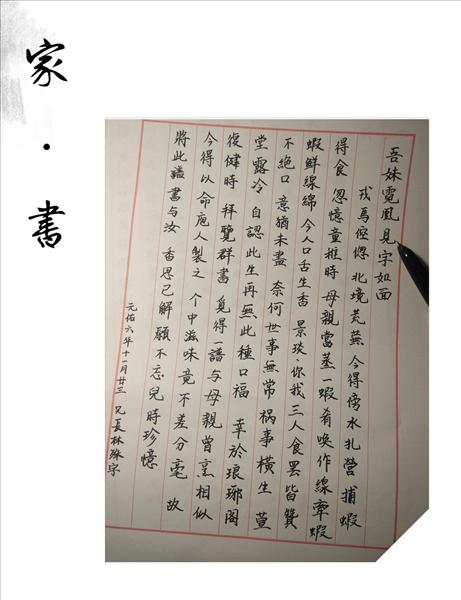 家·書
吾妹霓凰見字如面
戎馬倥傯 北境荒蕪 今得傍水扎營 捕蝦
得食 忽憶童稚時 母親嘗蒸一蝦肴 喚作線牽蝦
蝦鮮線綿 令人口舌生香 景琰、你我三人食罷皆贊
不絕口 意猶未盡 奈何世事無常 禍事橫生 萱
堂露冷 自認此生再無此種口福 幸於琅琊閣
復健時 拜覽群書 覓得一譜与母親曾烹相似
今得以命庖人製之 个中滋味竟不差分毫 故
將此譜書与汝 香思已解 願不忘兒時珍憶
元佑六年十一月廿三 兄長林殊字